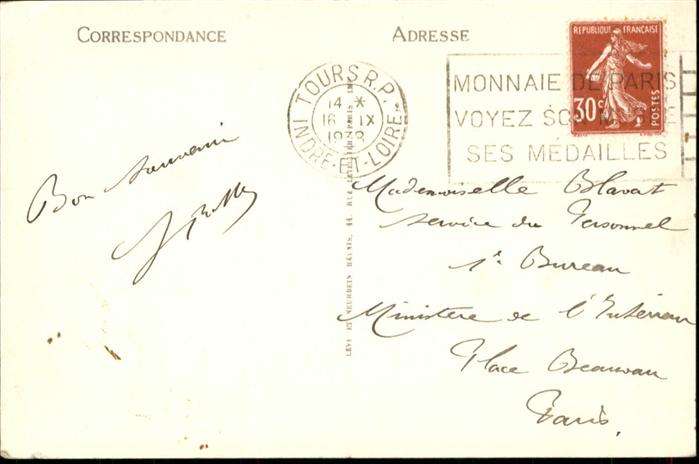 CORRESPONDANCE
ADRESSE
RÉPUBLIQUE FRANÇAISE
30c
POSTES
TOURS R.P.
14 *
16 IX
INDRE-ET-LOIRE
MONNAIE DE PARIS
VOYEZ SON MUSÉE
SES MÉDAILLES
Bon souvenir
Mademoiselle Blavat
Service du Personnel
1er Bureau
Ministère de l'Intérieur
Place Beauvau
Paris.
LEVY ET NEURDEIN RÉUNIS, 44, RUE